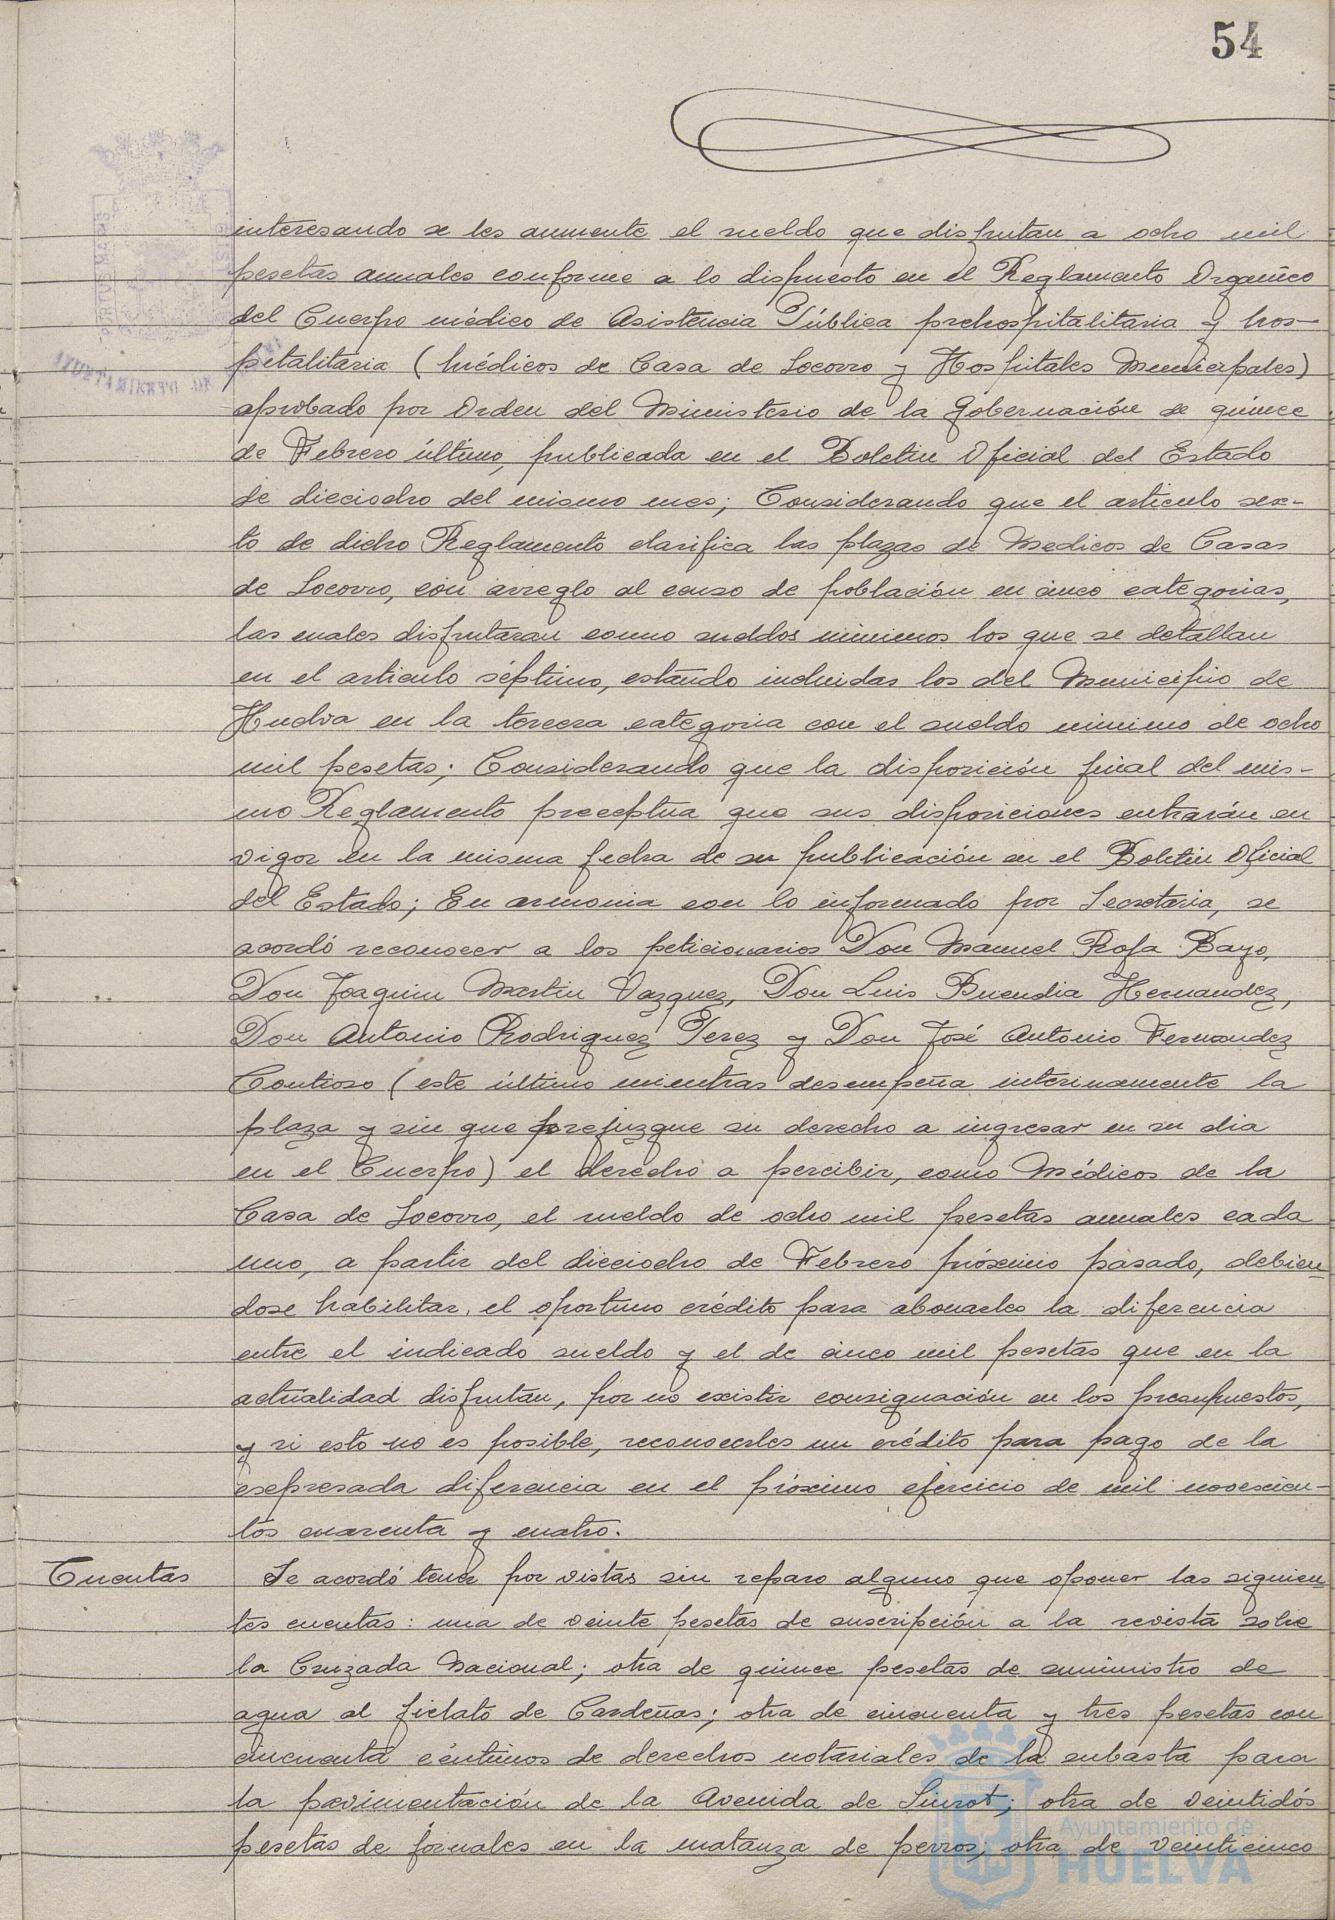 54
interesando se les aumente el sueldo que disfrutan a ocho mil
pesetas anuales conforme a lo dispuesto en el Reglamento Orgánico
del Cuerpo médico de Asistencia Pública prehospitalitaria y hos-
pitalitaria (Médicos de Casa de Socorro y Hospitales Municipales)
aprobado por Orden del Ministerio de la Gobernación de quince
de Febrero último, publicada en el Boletin Oficial del Estado
de dieciocho del mismo mes; Considerando que el articulo sex-
to de dicho Reglamento clasifica las plazas de Medicos de Casas
de Socorro, con arreglo al censo de población en cinco categorias,
las cuales disfrutaran como sueldos minimos los que se detallan
en el articulo séptimo, estando incluidas los del Municipio de
Huelva en la tercera categoria con el sueldo minimo de ocho
mil pesetas; Considerando que la disposición final del mis-
mo Reglamento preceptua que sus disposiciones entrarán en
vigor en la misma fecha de su publicación en el Boletin Oficial
del Estado; En armonia con lo informado por Secretaria, se
acordó reconocer a los peticionarios Don Manuel Rofa Bayo,
Don Joaquin Martin Vazquez, Don Luis Buendia Hernandez,
Don Antonio Rodriguez Perez y Don José Antonio Fernandez
Contioso (este último mientras desempeña interinamente la
plaza y sin que prejuzgue su derecho a ingresar en su dia
en el Cuerpo) el derecho a percibir, como Médicos de la
Casa de Socorro, el sueldo de ocho mil pesetas anuales cada
uno, a partir del dieciocho de Febrero próximo pasado, debien-
dose habilitar, el oportuno crédito para abonarles la diferencia
entre el indicado sueldo y el de cinco mil pesetas que en la
actualidad disfrutan, por no existir consignación en los presupuestos,
y si esto no es posible, reconocerles un crédito para pago de la
expresada diferencia en el próximo ejercicio de mil novecien-
tos cuarenta y cuatro.
Cuentas Se acordó tener por vistas sin reparo alguno que oponer las siguien-
tes cuentas: una de veinte pesetas de suscripción a la revista sobre
la Cruzada Nacional; otra de quince pesetas de suministro de
agua al fielato de Cardeñas; otra de cincuenta y tres pesetas con
cincuenta céntimos de derechos notariales de la subasta para
la pavimentación de la Avenida de Siurot; otra de veintidós
pesetas de jornales en la matanza de perros; otra de veinticinco
Ayuntamiento de
HUELVA